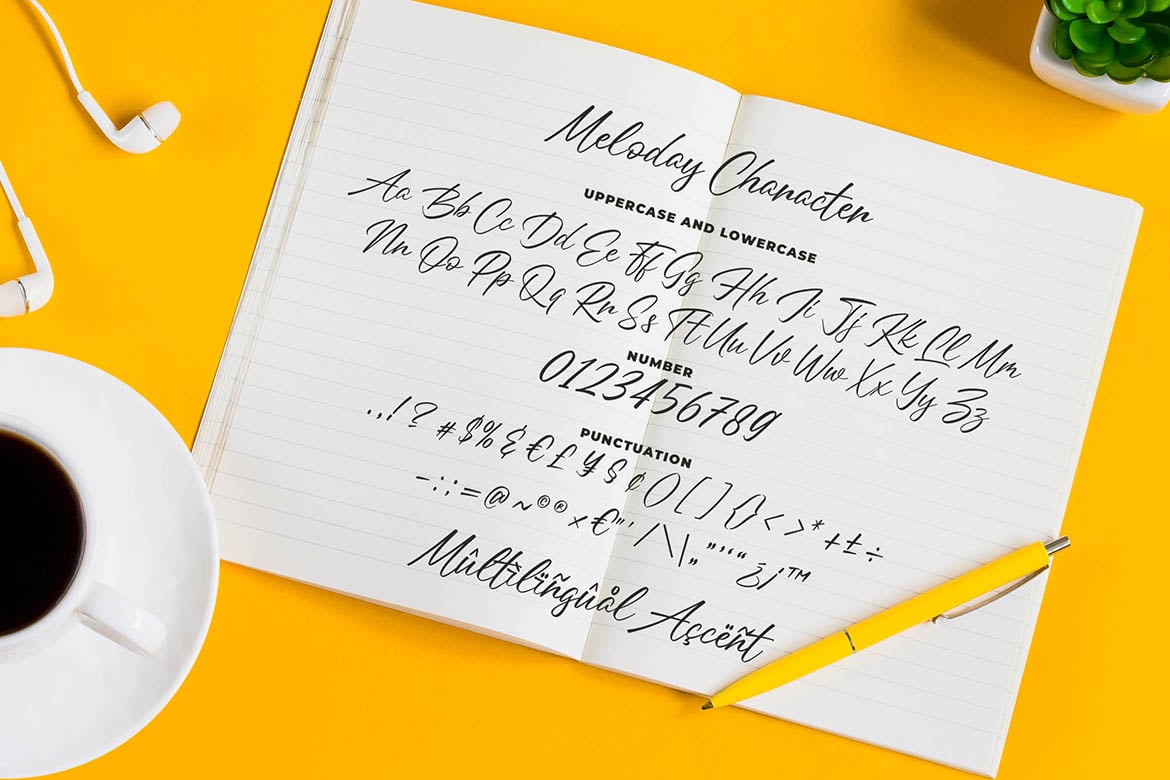 Meloday Character
UPPERCASE AND LOWERCASE
Aa Bb Cc Dd Ee Ff Gg Hh Ii Jj Kk Ll Mm
Nn Oo Pp Qq Rr Ss Tt Uu Vv Ww Xx Yy Zz
NUMBER
0123456789
PUNCTUATION
.,! ? # $ % & € £ ¥ § ¢ () [ ] {} < > * + ± ÷
- : ; = @ ~ © ® × € " ' / \ | „ " ' ' " " ¿ ¡ ™
Mûltìlïñgûål Asçëñt